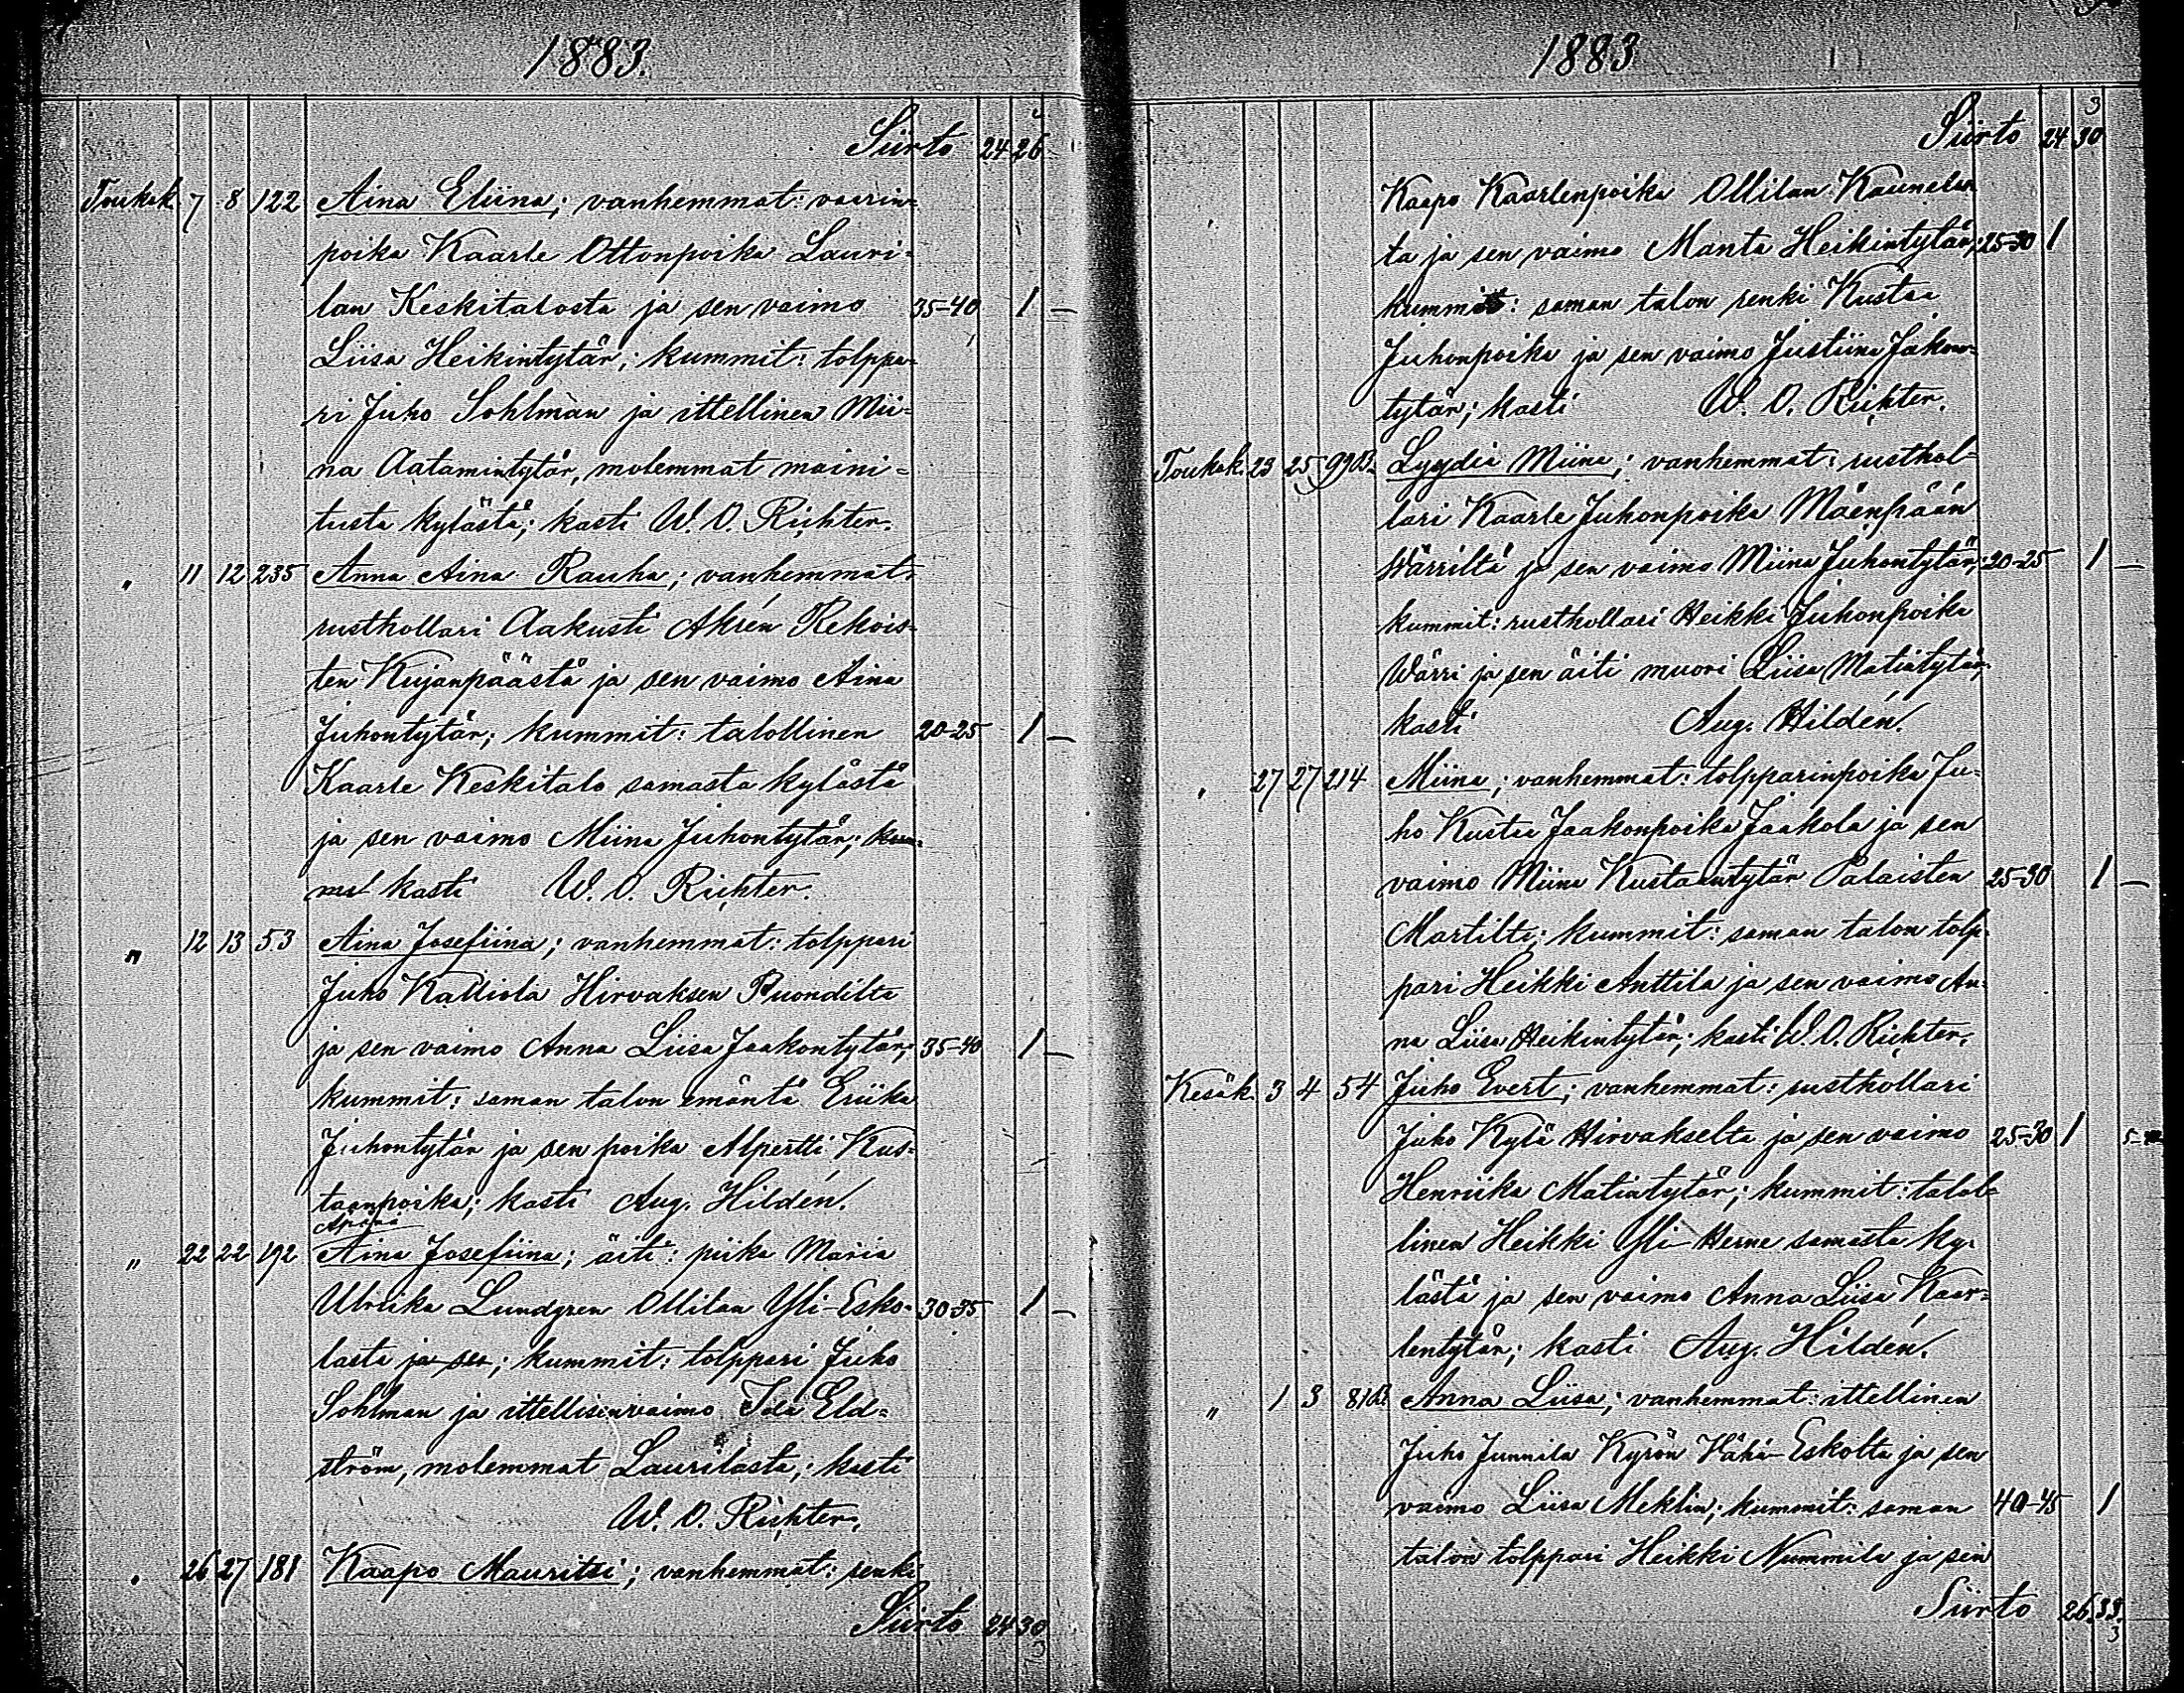 1883.
Siirto 24 26
Toukok. 7 8 122 Aina Eliina; vanhemmat: vaarin=
poika Kaarle Ottonpoika Lauri=
lan Keskitalosta ja sen vaimo 35-40 1 —
Liisa Heikintytär; kummit: tolppa=
ri Juho Sohlman ja ittellinen Mii=
na Aatamintytär, molemmat maini=
tusta kylästä; kasti W. O. Richter.
" 11 12 235 Anna Aina Rauha; vanhemmat:
rusthollari Aakusti Akrén Rekois=
ten Kujanpäästä ja sen vaimo Aina
Juhontytär; kummit: talollinen 20-25 1 —
Kaarle Keskitalo samasta kylästä
ja sen vaimo Miina Juhontytär;
kasti W. O. Richter.
" 12 13 53 Aina Josefiina; vanhemmat: tolppari
Juho Kalliola Hirvaksen Puondilta
ja sen vaimo Anna Liisa Jaakontytär; 35-40 1 —
kummit: saman talon emäntä Eriika
Juhontytär ja sen poika Alpertti Kus=
taanpoika; kasti Aug. Hildén.
" 22 22 192 Aina Josefiina; äiti: piika Maria
Ulriika Lundgren Ollilan Yli-Esko= 30-35 1 —
lasta ja sen; kummit: tolppari Juho
Sohlman ja ittellisenvaimo Ida Eld=
ström, molemmat Laurilasta; kasti
W. O. Richter.
" 26 27 181 Kaapo Mauritsi; vanhemmat: renki
Siirto 24 30
3
1883
3
Siirto 24 30
Kaapo Kaarlenpoika Ollilan Kaunelas
ta ja sen vaimo Manta Heikintytär; 25-30 1
kummit: saman talon renki Kustaa
Juhonpoika ja sen vaimo Justiina Jakon=
tytär; kasti W. O. Richter.
Toukok. 23 25 Lyydia Miina; vanhemmat: rusthol=
lari Kaarle Juhonpoika Mäenpään
Wärriltä ja sen vaimo Miina Juhontytär; 20-25 1 —
kummit: rusthollari Heikki Juhonpoika
Wärri ja sen äiti muori Liisa Matintytär;
kasti Aug. Hildén.
" 27 27 214 Miina; vanhemmat: tolpparinpoika Ju=
ho Kustaa Jaakonpoika Jaakola ja sen
vaimo Miina Kustaantytär Palaisten 25-30 1 —
Martilta; kummit: saman talon tolp=
pari Heikki Anttila ja sen vaimo An=
na Liisa Heikintytär; kasti W. O. Richter.
Kesäk. 3 4 54 Juho Evert; vanhemmat: rusthollari
Juho Kylä Hirvakselta ja sen vaimo 25-30 1
Henriika Matintytär; kummit: talol=
linen Heikki Yli-Herne samasta ky=
lästä ja sen vaimo Anna Liisa Kaar=
lentytär; kasti Aug. Hildén.
" 1 3 Anna Liisa; vanhemmat: ittellinen
Juho Junnila Kyrön Vähä-Eskolta ja sen
vaimo Liisa Meklin; kummit: saman 40-45 1
talon tolppari Heikki Nummila ja sen
Siirto 26 33.
3